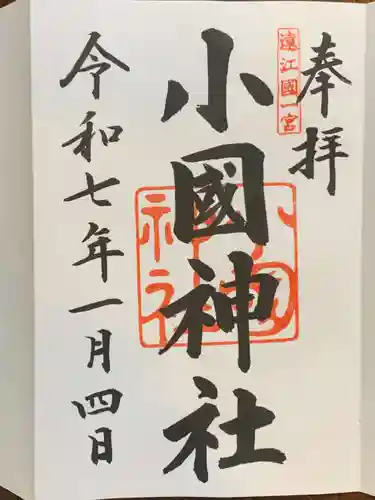 奉拝
遠江國一宮
小國神社
小國神社
令和七年一月四日